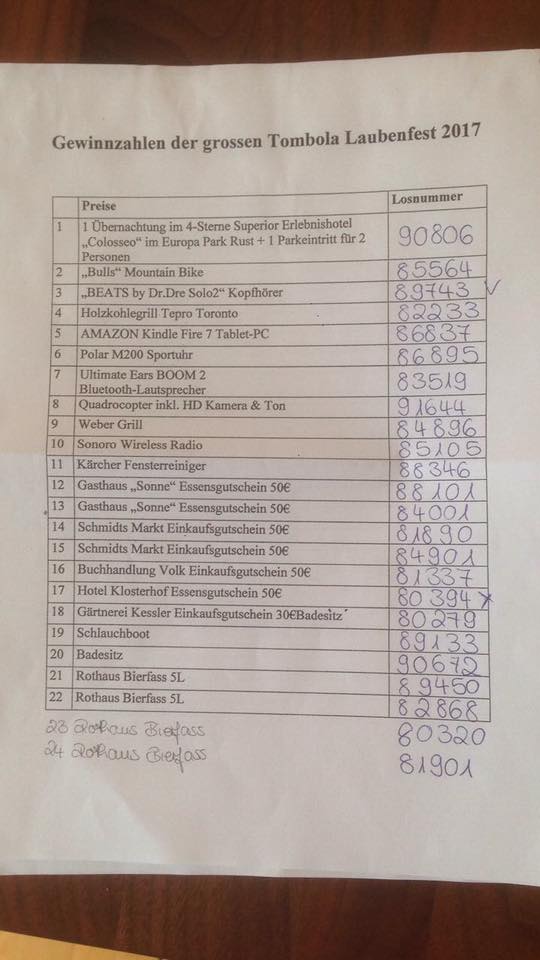 Gewinnzahlen der grossen Tombola Laubenfest 2017
Preise Losnummer
1 1 Übernachtung im 4-Sterne Superior Erlebnishotel
„Colosseo“ im Europa Park Rust + 1 Parkeintritt für 2
Personen 90806
2 „Bulls“ Mountain Bike 85564
3 „BEATS by Dr.Dre Solo2“ Kopfhörer 89743 ✓
4 Holzkohlegrill Tepro Toronto 82233
5 AMAZON Kindle Fire 7 Tablet-PC 86837
6 Polar M200 Sportuhr 86895
7 Ultimate Ears BOOM 2
Bluetooth-Lautsprecher 83519
8 Quadrocopter inkl. HD Kamera & Ton 91644
9 Weber Grill 84896
10 Sonoro Wireless Radio 85105
11 Kärcher Fensterreiniger 88346
12 Gasthaus „Sonne“ Essensgutschein 50€ 88101
13 Gasthaus „Sonne“ Essensgutschein 50€ 84001
14 Schmidts Markt Einkaufsgutschein 50€ 81890
15 Schmidts Markt Einkaufsgutschein 50€ 84901
16 Buchhandlung Volk Einkaufsgutschein 50€ 81337
17 Hotel Klosterhof Essensgutschein 50€ 80394 x
18 Gärtnerei Kessler Einkaufsgutschein 30€Badesitz 80279
19 Schlauchboot 89133
20 Badesitz 90672
21 Rothaus Bierfass 5L 89450
22 Rothaus Bierfass 5L 82868
23 Rothaus Bierfass 80320
24 Rothaus Bierfass 81901